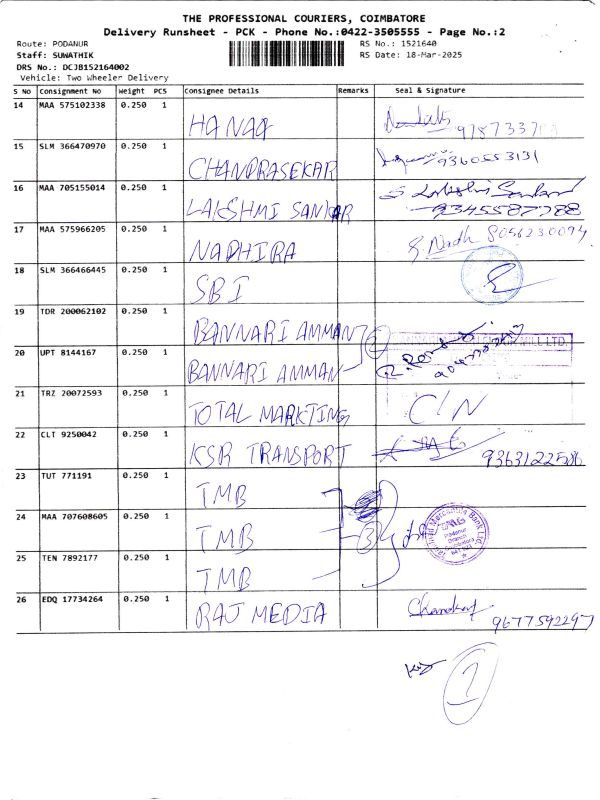 THE PROFESSIONAL COURIERS, COIMBATORE
Delivery Runsheet - PCK - Phone No.:0422-3505555 - Page No.:2
Route: PODANUR RS No.: 1521640
Staff: SUWATHIK RS Date: 18-Mar-2025
DRS No.: DCJB152164002
Vehicle: Two Wheeler Delivery
S No Consignment No Weight PCS Consignee Details Remarks Seal & Signature
14 MAA 575102338 0.250 1 HANAA
15 SLM 366470970 0.250 1 CHANDRASEKAR 9360553131
16 MAA 705155014 0.250 1 LAKSHMI SANKAR S Lakshmi Sankar
9345587788
17 MAA 575966205 0.250 1 NADHIRA 8056230094
18 SLM 366466445 0.250 1 SBI
19 TDR 200062102 0.250 1 BANNARI AMMAN
20 UPT 8144167 0.250 1 BANNARI AMMAN
21 TRZ 20072593 0.250 1 TOTAL MARKTING C/N
22 CLT 9250042 0.250 1 KSR TRANSPORT 9363122586
23 TUT 771191 0.250 1 TMB
24 MAA 707608605 0.250 1 TMB 3
25 TEN 7892177 0.250 1 TMB
26 EDQ 17734264 0.250 1 RAJ MEDIA 9677592297